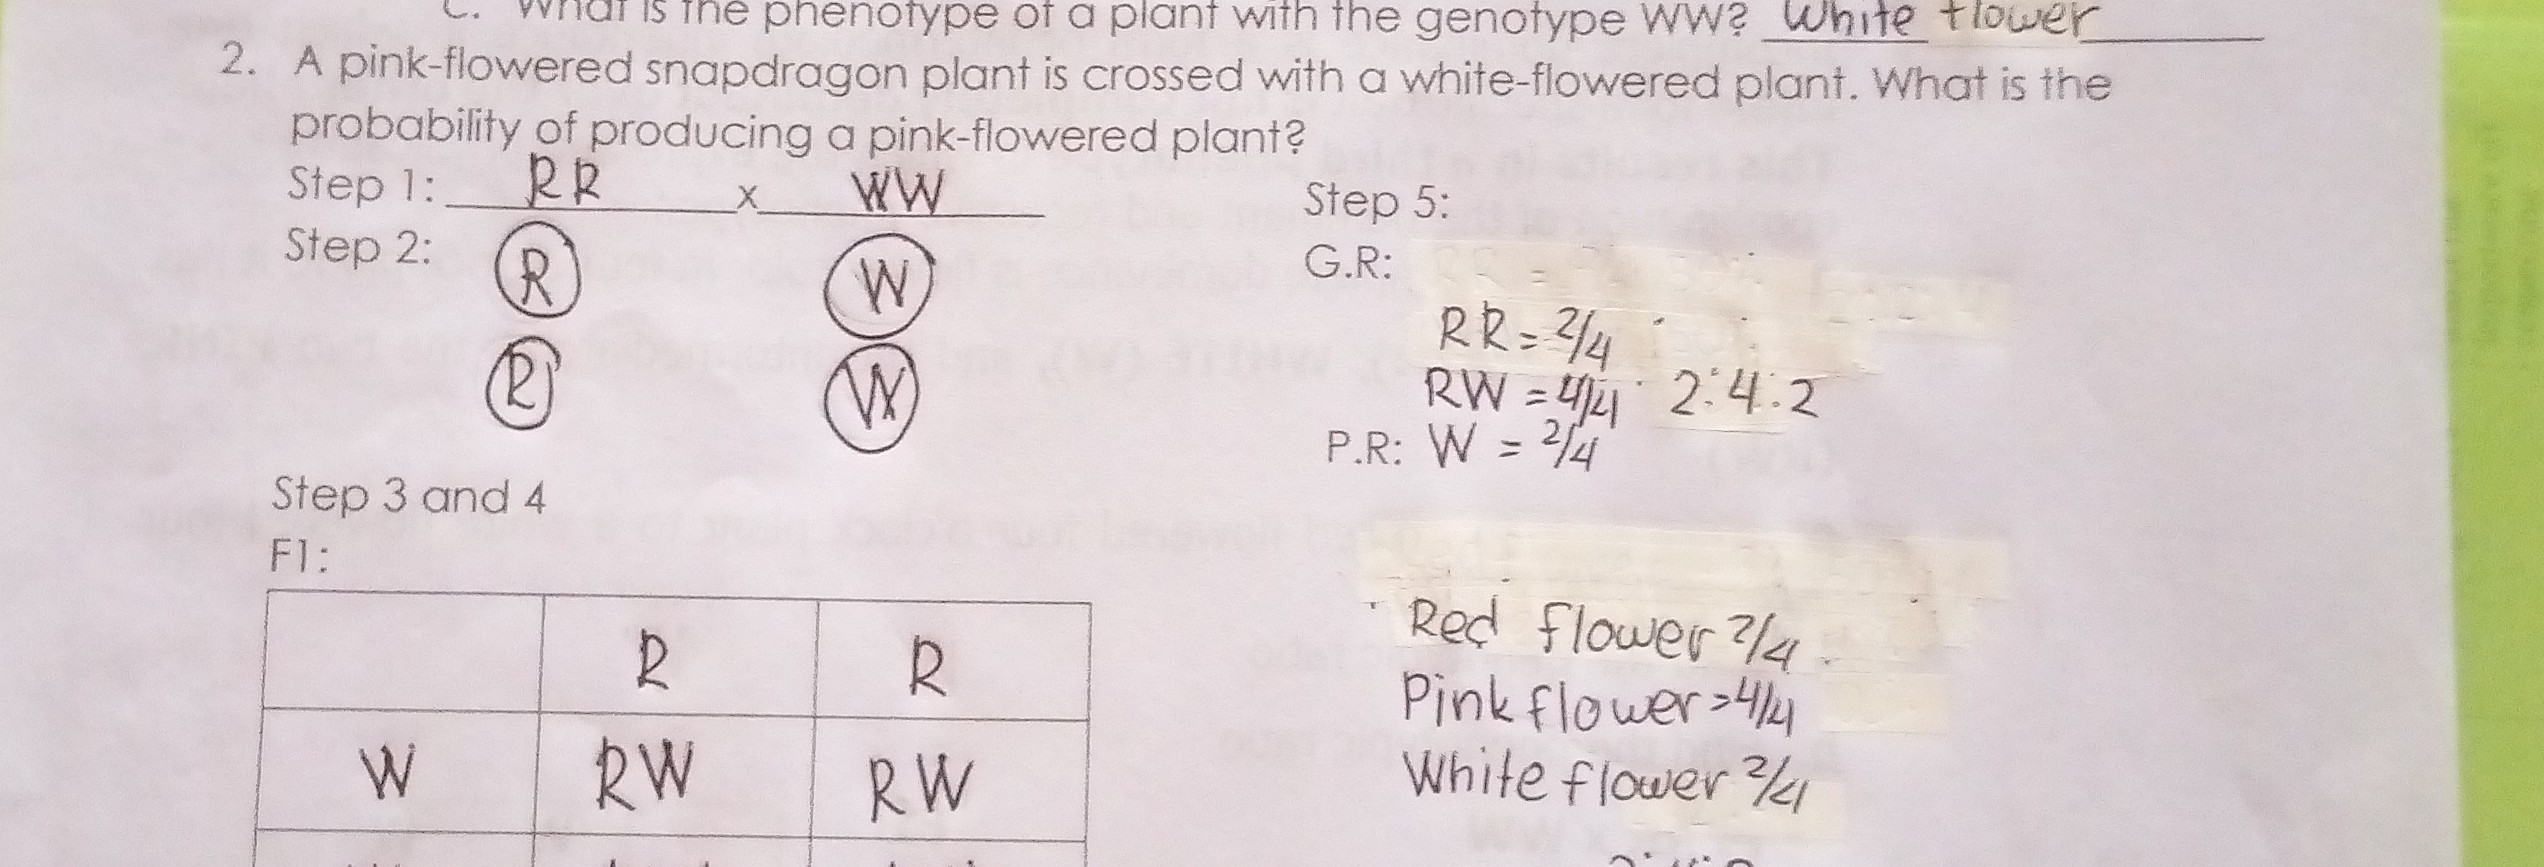 C. What is the phenotype of a plant with the genotype WW? White flower
2. A pink-flowered snapdragon plant is crossed with a white-flowered plant. What is the
probability of producing a pink-flowered plant?
Step 1: RR x WW
Step 2: R W
R W
Step 3 and 4
F1:
R R
W RW RW
Step 5:
G.R:
RR = 2/4
RW = 4/4 2:4:2
P.R: W = 2/4
Red flower 2/4
Pink flower = 4/4
White flower 2/4